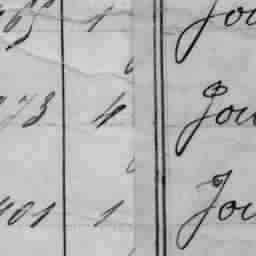 65 1 Jou
73 4 Jou
401 1 Jou